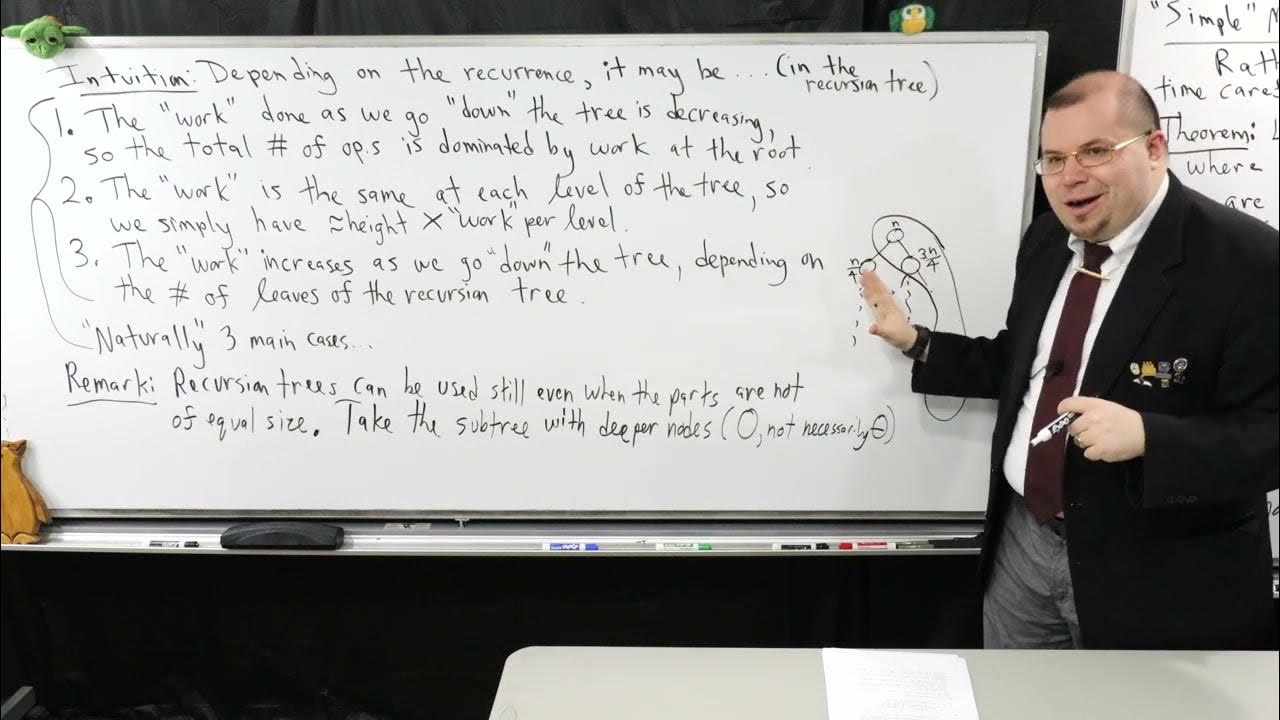 Intuition: Depending on the recurrence, it may be ... (in the
recursion tree)
1. The "work" done as we go "down" the tree is decreasing,
so the total # of op.s is dominated by work at the root.
2. The "work" is the same at each level of the tree, so
we simply have ≈height × "work" per level.
3. The "work" increases as we go "down" the tree, depending on
the # of leaves of the recursion tree.
"Naturally" 3 main cases...
Remark: Recursion trees can be used still even when the parts are not
of equal size. Take the subtree with deeper nodes (O, not necessarily Θ)
n
n/4
3n/4
"Simple"
time
Theorem:
where
are
EXPO